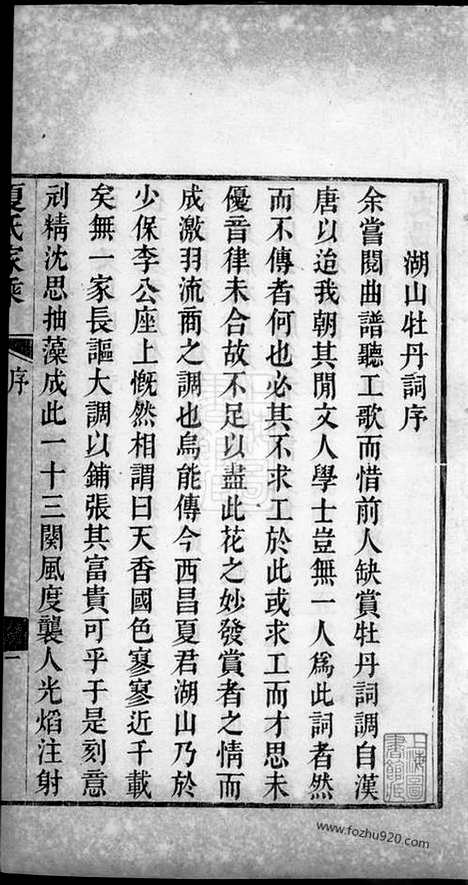 湖山牡丹詞序
余嘗閱曲譜聽工歌而惜前人缺賞牡丹詞調自漢
唐以迨我朝其間文人學士豈無一人為此詞者然
而不傳者何也必其不求工於此或求工而才思未
優音律未合故不足以盡此花之妙發賞者之情而
成激羽流商之調也烏能傳今西昌夏君湖山乃於
少保李公座上慨然相謂曰天香國色寥寥近千載
矣無一家長謳大調以鋪張其富貴可乎于是刻意
刓精沈思抽藻成此一十三闋風度襲人光焰注射
夏氏家乘
序
一
上海圖書館藏
www.fozhu920.com